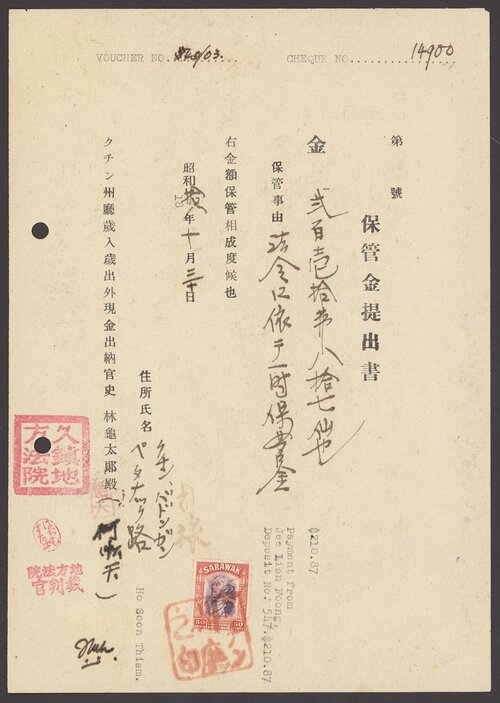 VOUCHER NO. 
CHEQUE NO. 14900
第 號
保管金提出書
金 弐百壱拾弗八拾七仙也
保管事由 法令ニ依テ一時保管金
右金額保管相成度候也
昭和拾八年十月三十日
18
住所氏名
クチン
路
クチン州廳歳入歳出外現金出納官吏 林龜太郎殿
久鎮地
方法院
地方法院
裁判官
$210.87
Payment from
Jee Lian Foong,
Deposit No: 547.$210.87
Ho Soon Thiam.
SARAWAK
50 50